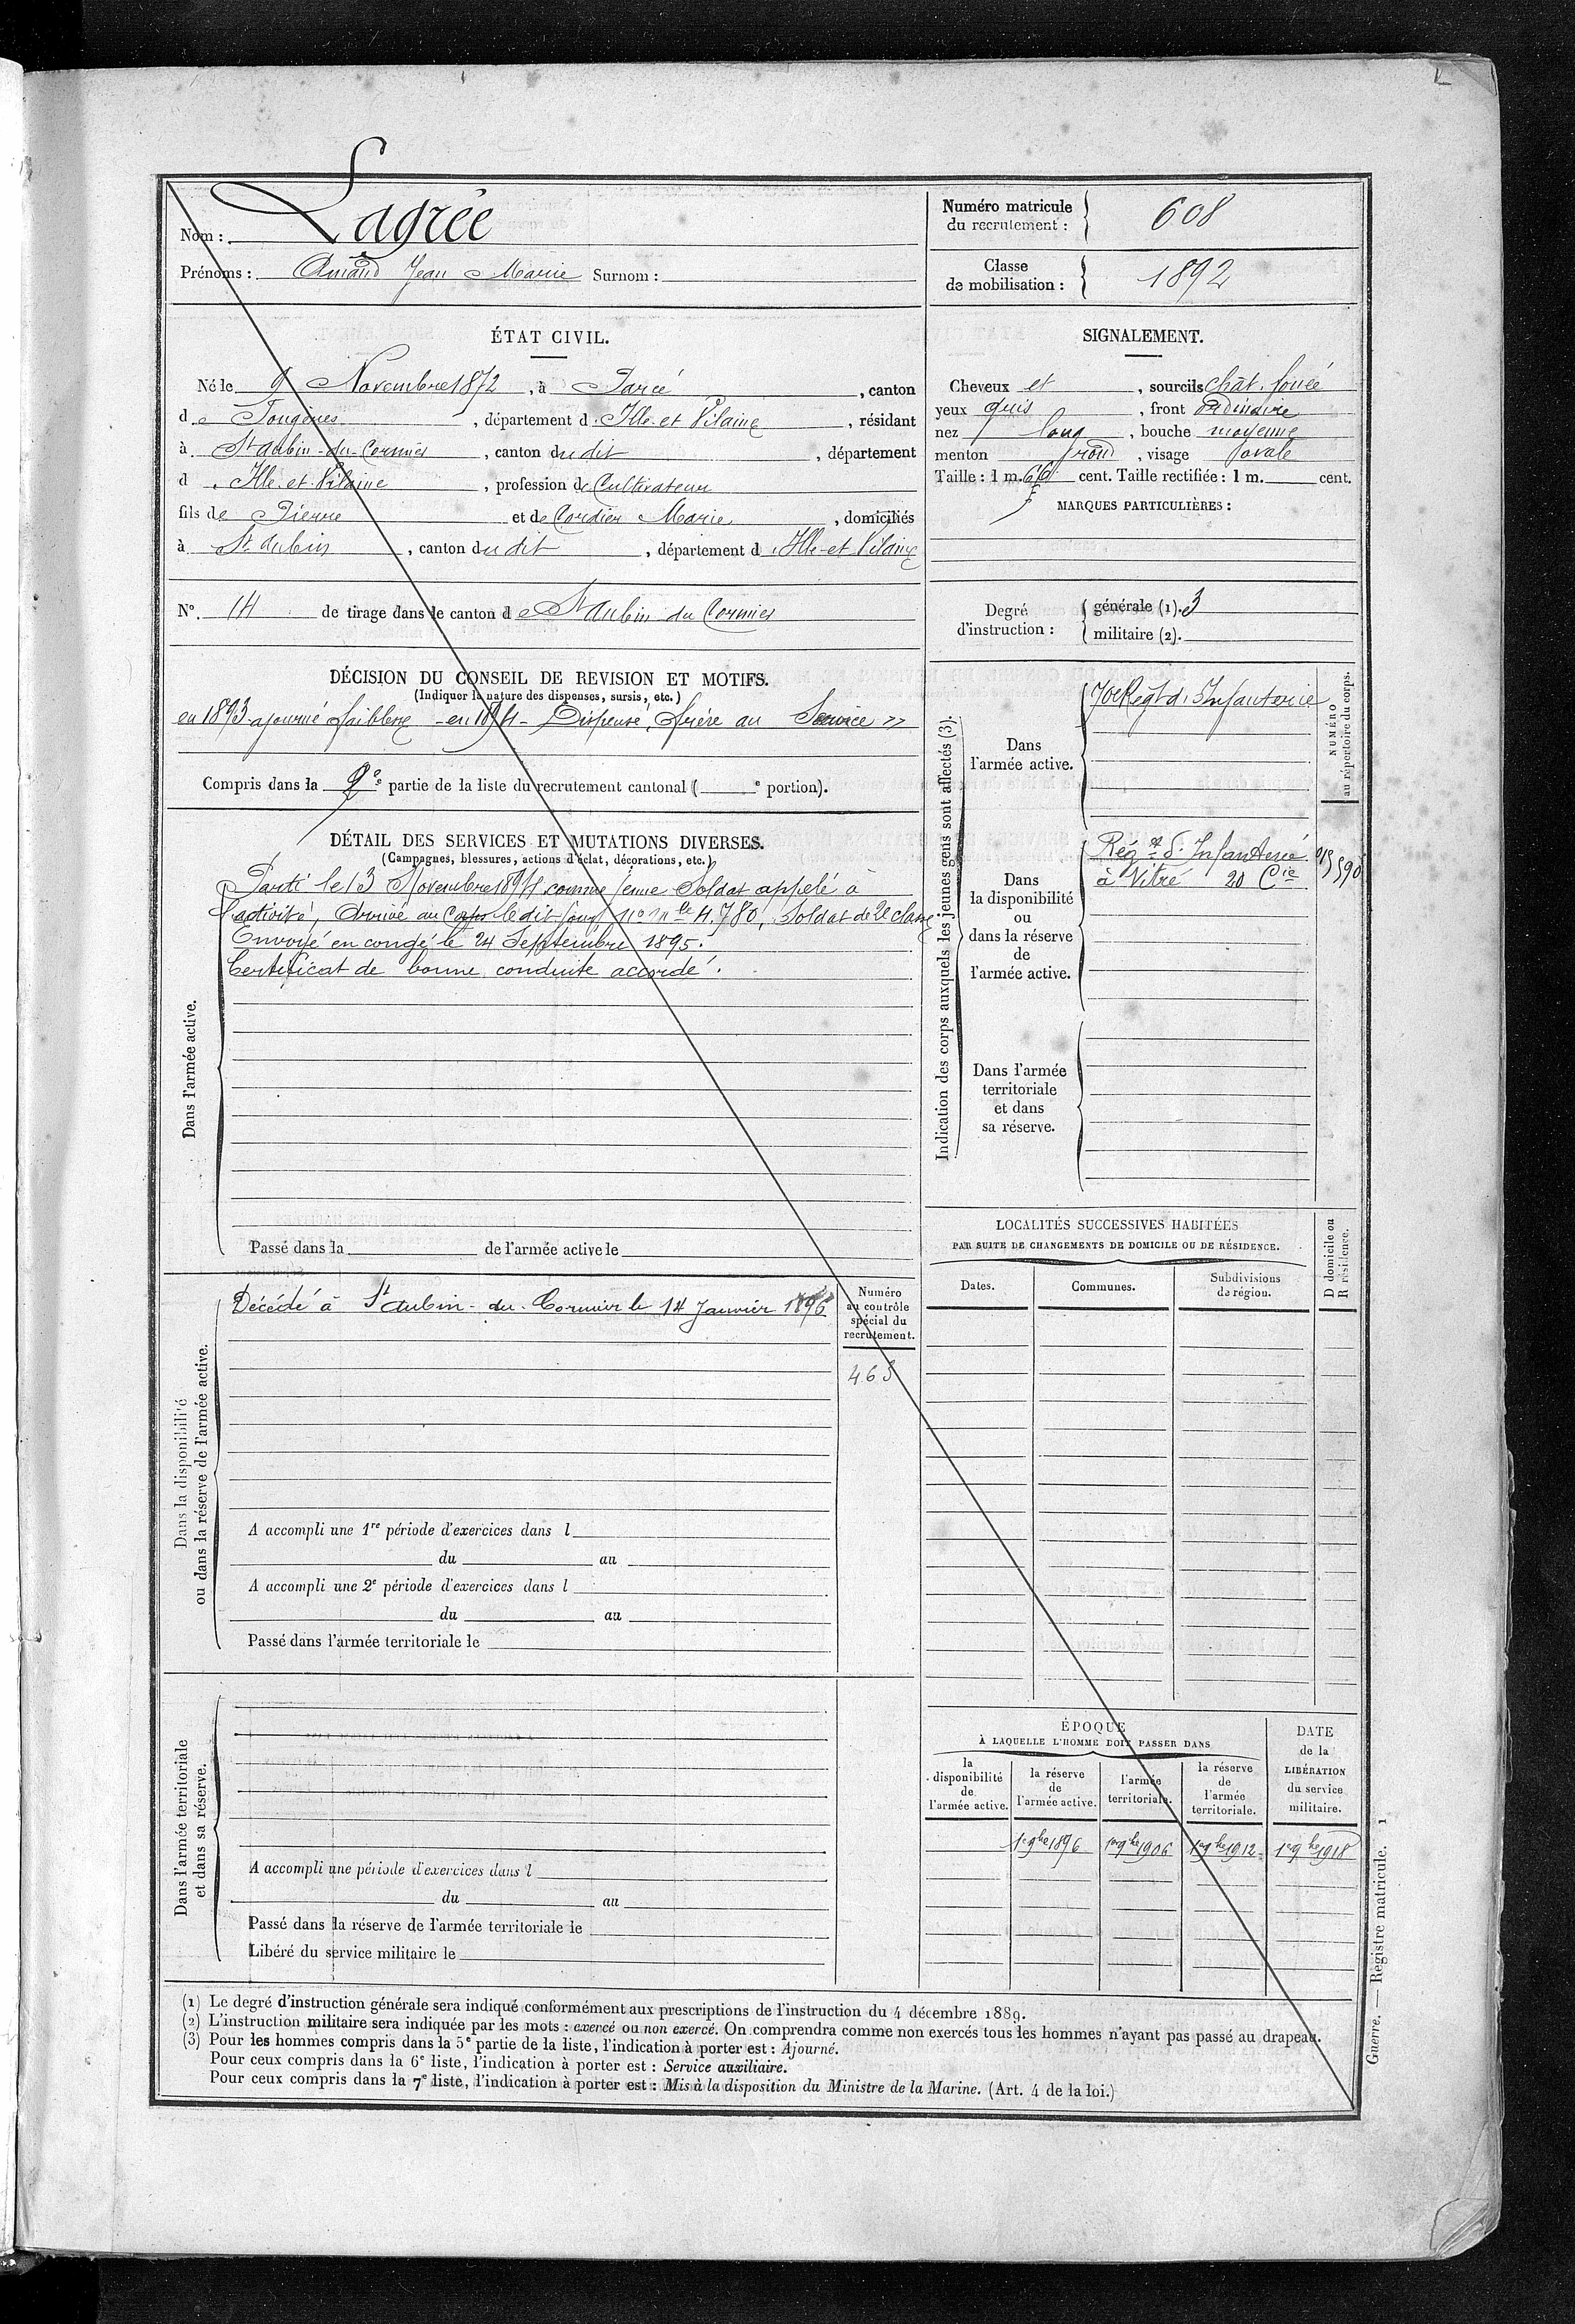 Nom : Lagrée
Prénoms : Amand Jean Marie Surnom :
Numéro matricule du recrutement : 608
Classe de mobilisation : 1892
ÉTAT CIVIL.
Né le 9 Novembre 1872, à Parcé, canton
de Fougères, département d'Ille et Vilaine, résidant
à St Aubin-du-Cormier, canton du dit, département
d'Ille-et-Vilaine, profession de Cultivateur
fils de Pierre et de Cordier Marie, domiciliés
à St Aubin, canton du dit, département d'Ille-et-Vilaine
N° 14 de tirage dans le canton de St Aubin du Cormier
SIGNALEMENT.
Cheveux et, sourcils chât. foncé
yeux gris, front ordinaire
nez long, bouche moyenne
menton rond, visage ovale
Taille : 1 m. 66 cent. Taille rectifiée : 1 m. cent.
MARQUES PARTICULIÈRES :
Degré d'instruction :
générale (1). 3
militaire (2).
DÉCISION DU CONSEIL DE REVISION ET MOTIFS.
(Indiquer la nature des dispenses, sursis, etc.)
en 1893 ajourné faiblesse - en 1894 - Dispensé, frère au Service »
Compris dans la 2e partie de la liste du recrutement cantonal ( e portion).
DÉTAIL DES SERVICES ET MUTATIONS DIVERSES.
(Campagnes, blessures, actions d'éclat, décorations, etc.)
Dans l'armée active.
Parti le 13 Novembre 1894 comme jeune Soldat appelé à
l'activité, Arrivé au Corps le dit jour, no mle 4.780, Soldat de 2e classe
Envoyé en congé le 24 Septembre 1895.
Certificat de bonne conduite accordé.
Passé dans la de l'armée active le
Indication des corps auxquels les jeunes gens sont affectés (3).
NUMÉRO au répertoire du corps.
Dans l'armée active.
70e Régt d'Infanterie
Dans la disponibilité ou dans la réserve de l'armée active.
Régt d'Infanterie
à Vitré 20 Cie
Dans l'armée territoriale et dans sa réserve.
Dans la disponibilité ou dans la réserve de l'armée active.
Décédé à St Aubin-du-Cormier le 14 Janvier 1896
Numéro au contrôle spécial du recrutement.
463
A accompli une 1re période d'exercices dans l
du au
A accompli une 2e période d'exercices dans l
du au
Passé dans l'armée territoriale le
LOCALITÉS SUCCESSIVES HABITÉES
PAR SUITE DE CHANGEMENTS DE DOMICILE OU DE RÉSIDENCE.
Dates. Communes. Subdivisions de région. D domicile ou R résidence.
Dans l'armée territoriale et dans sa réserve.
A accompli une période d'exercices dans l
du au
Passé dans la réserve de l'armée territoriale le
Libéré du service militaire le
ÉPOQUE
À LAQUELLE L'HOMME DOIT PASSER DANS
la disponibilité de l'armée active.
la réserve de l'armée active.
l'armée territoriale.
la réserve de l'armée territoriale.
DATE de la LIBÉRATION du service militaire.
1er 9bre 1896 1er 9bre 1906 1er 9bre 1912 1er 9bre 1918
(1) Le degré d'instruction générale sera indiqué conformément aux prescriptions de l'instruction du 4 décembre 1889.
(2) L'instruction militaire sera indiquée par les mots : exercé ou non exercé. On comprendra comme non exercés tous les hommes n'ayant pas passé au drapeau.
(3) Pour les hommes compris dans la 5e partie de la liste, l'indication à porter est : Ajourné.
Pour ceux compris dans la 6e liste, l'indication à porter est : Service auxiliaire.
Pour ceux compris dans la 7e liste, l'indication à porter est : Mis à la disposition du Ministre de la Marine. (Art. 4 de la loi.)
Guerre. — Registre matricule. 1